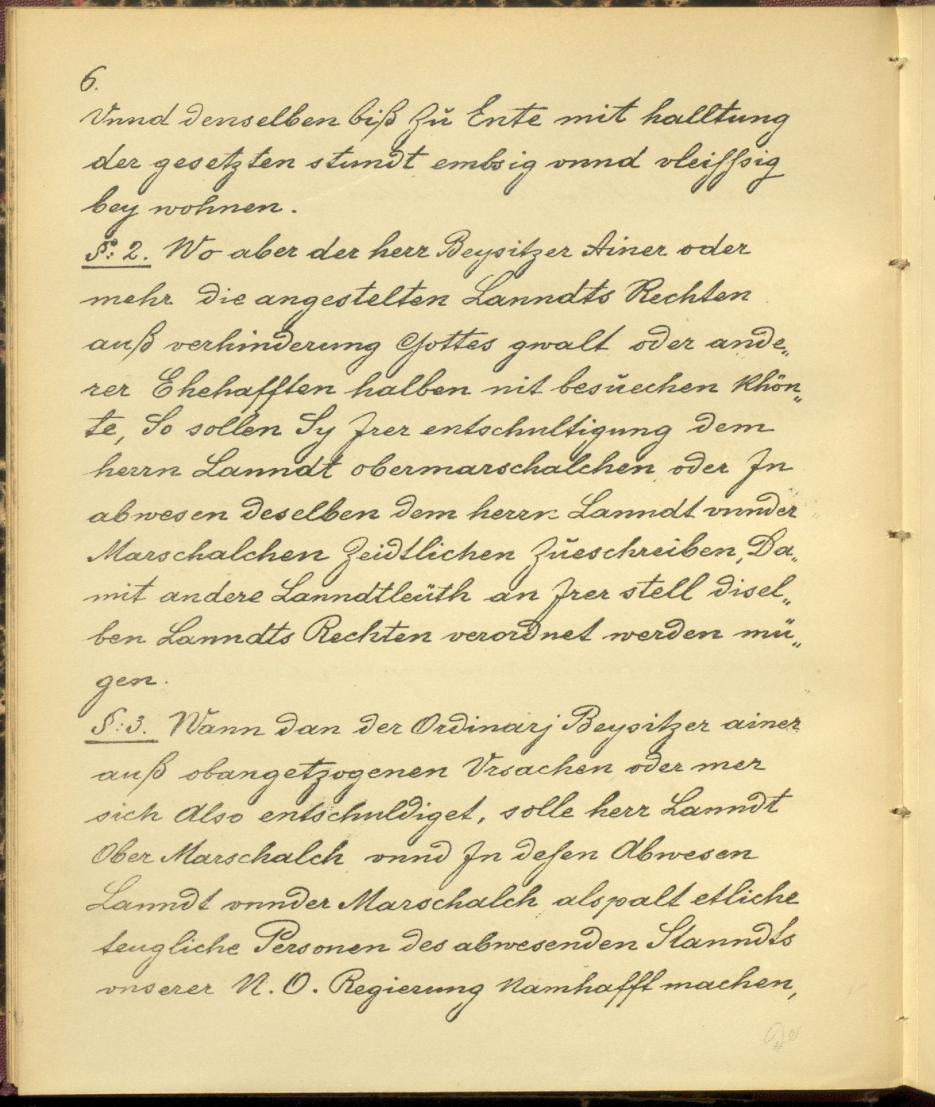 6.
Vnnd denselben biß Zu Ente mit halltung
der gesetzten stundt embsig vnnd vleiffsig
bey wohnen.
§: 2. Wo aber der herr Beysitzer Ainer oder
mehr die angestelten Lanndts Rechten
auß verhinderung Gottes gwalt oder ande„
rer Ehehafften halben nit besuechen khön„
te, So sollen Sy Jrer entschultigung dem
herrn Lanndt obermarschalchen oder Jn
abwesen deselben dem herrn Lanndt vnnder
Marschalchen Zeidtlichen Zueschreiben, Da„
mit andere Lanndtleüth an Jrer stell disel„
ben Lanndts Rechten verordnet werden mü„
gen.
§: 3. Wann dan der Ordinarj Beysitzer ainer
auß obangetzogenen Vrsachen oder mer
sich Also entschuldiget, solle herr Lanndt
Ober Marschalch vnnd Jn deßen Abwesen
Lanndt vnnder Marschalch alspalt etliche
teugliche Personen des abwesenden Stanndts
vnserer N. O. Regierung Namhafft machen,